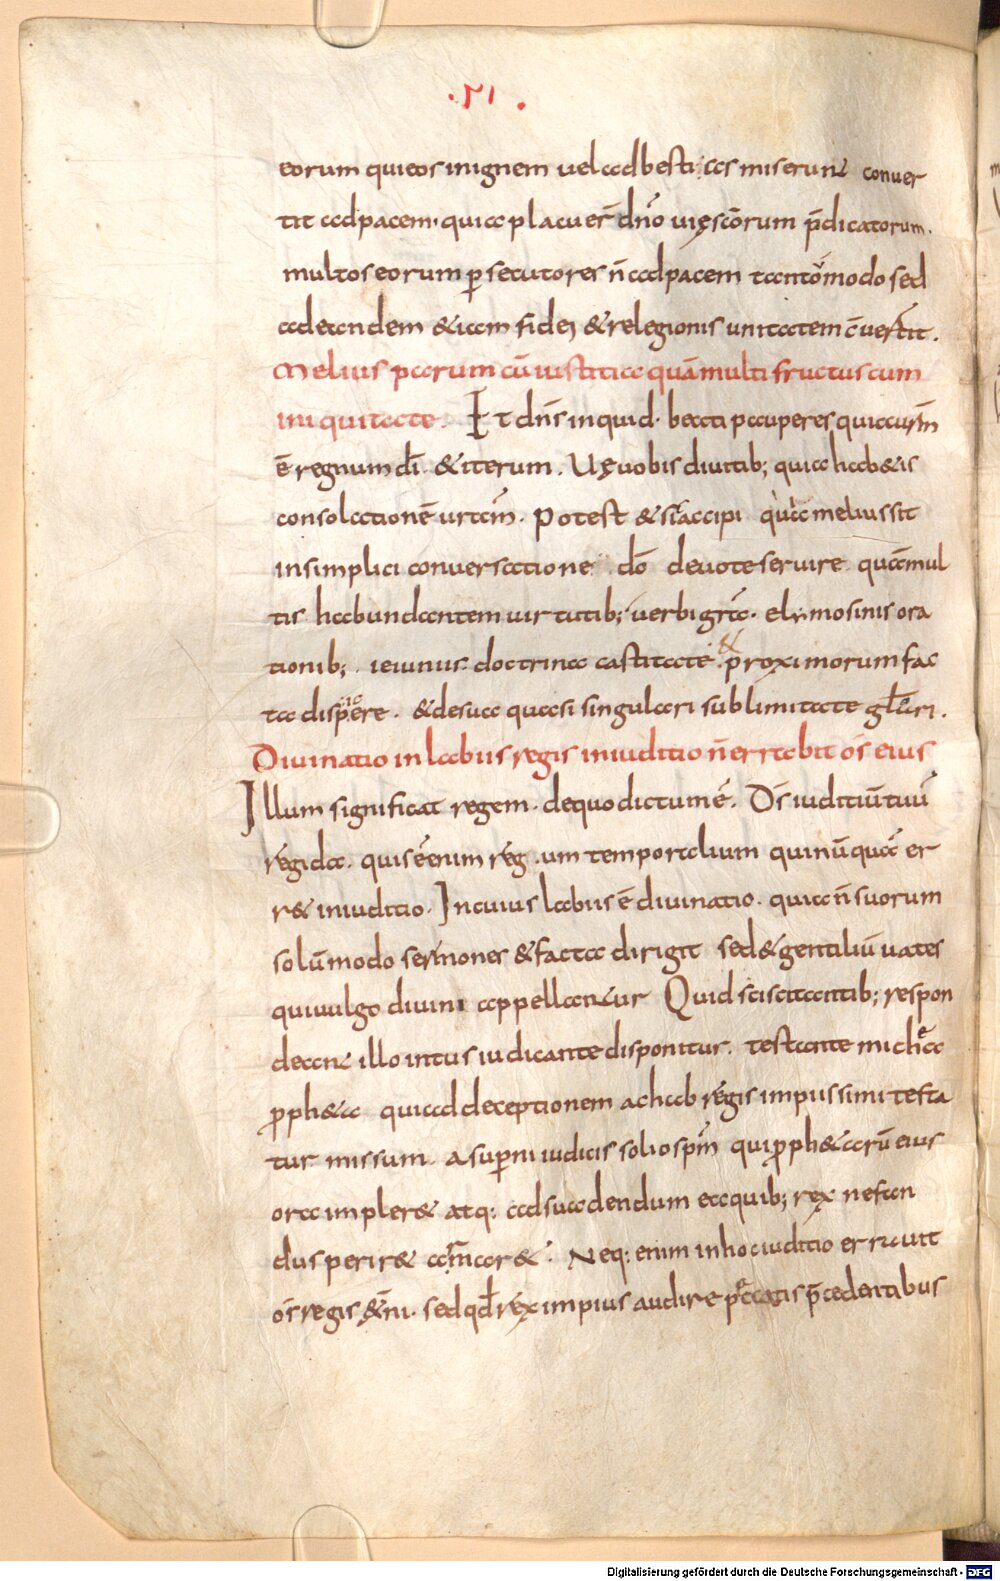 ·VI·
eorum qui eos in ignem uel ad bestias miserunt conuer
tit ad pacem. quia placuer̄ dn̄o uię sc̄orum p̄dicatorum.
multos eorum ꝑsecutores n̄ ad pacem tantōmodo sed
ad eandem & iam fidei & relegionis unitatem c̄uertit.
Melius parum cū iustitia quā multi fructus cum
iniquitate. Et dn̄s inquid. beati pauperes quia ur̄m
ē regnum dī. & iterum. Uę uobis diuitib; quia hab&is
consolationē urām. Potest & sīc accipi quia melius sit
in simplici conuersatione dō deuote seruire quā mul
tis habundantem uirtutib; uerbi grā. elymosinis ora
tionib; ieiuniis doctrina castitate & proximorum fac
ta dispicere. & de sua quasi singulari sublimitate gloriari.
Diuinatio in labiis regis in iuditio n̄ errabit os eius
Illum significat regem. de quo dictum ē. Ds̄ iuditiū tuū
regi da. quis ē enim reg um temporalium qui nūquā er
r& in iuditio. In cuius labiis ē diuinatio. quia n̄ suorum
solūmodo sermones & facta dirigit sed & gentiliū uates
qui uulgo diuini appellantur Quid sciscitantib; respon
deant illo intus iudicante disponitur. testante michea
ꝓph&a qui ad deceptionem achab regis impiissimi testa
tur missum. a sup̄ni iudicis solio spm̄ qui ꝓph&arū eius
ora impler& atq: ad suadendum ea quib; rex nefan
dus perir& am̄ar&. Neq: enim in hoc iuditio errauit
os regis &n̄i. sed qđ rex impius audire peccatis p̄cedentibus
Digitalisierung gefördert durch die Deutsche Forschungsgemeinschaft - DFG